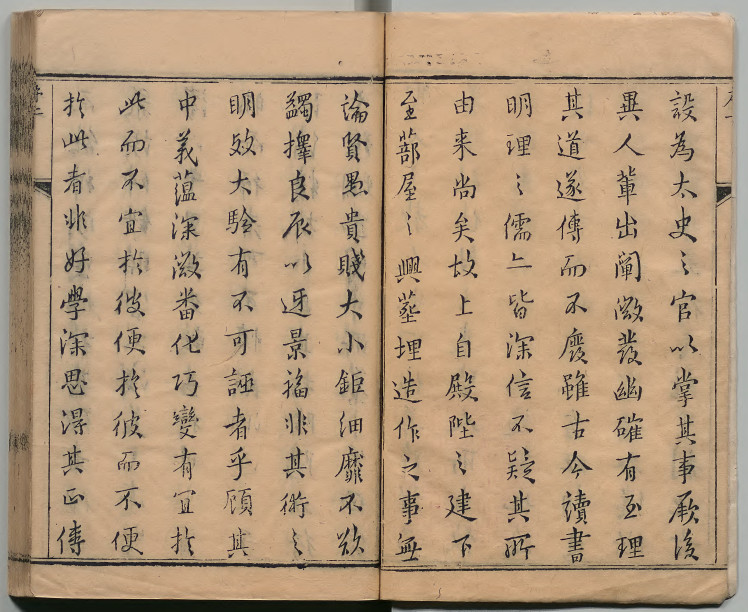 設為太史之官以掌其事厥後
異人輩出闡微發幽確有至理
其道遂傳而不廢雖古今讀書
明理之儒亦皆深信不疑其所
由来尚矣故上自殿陛之建下
至蔀屋之興塟埋造作之事無
論賢愚貴賤大小鉅細靡不欲
蠲擇良辰以迓景福非其術之
明效大驗有不可誣者乎顧其
中義蘊深微番化巧變有宜於
此而不宜於彼便於彼而不便
於此者非好學深思淂其正傳